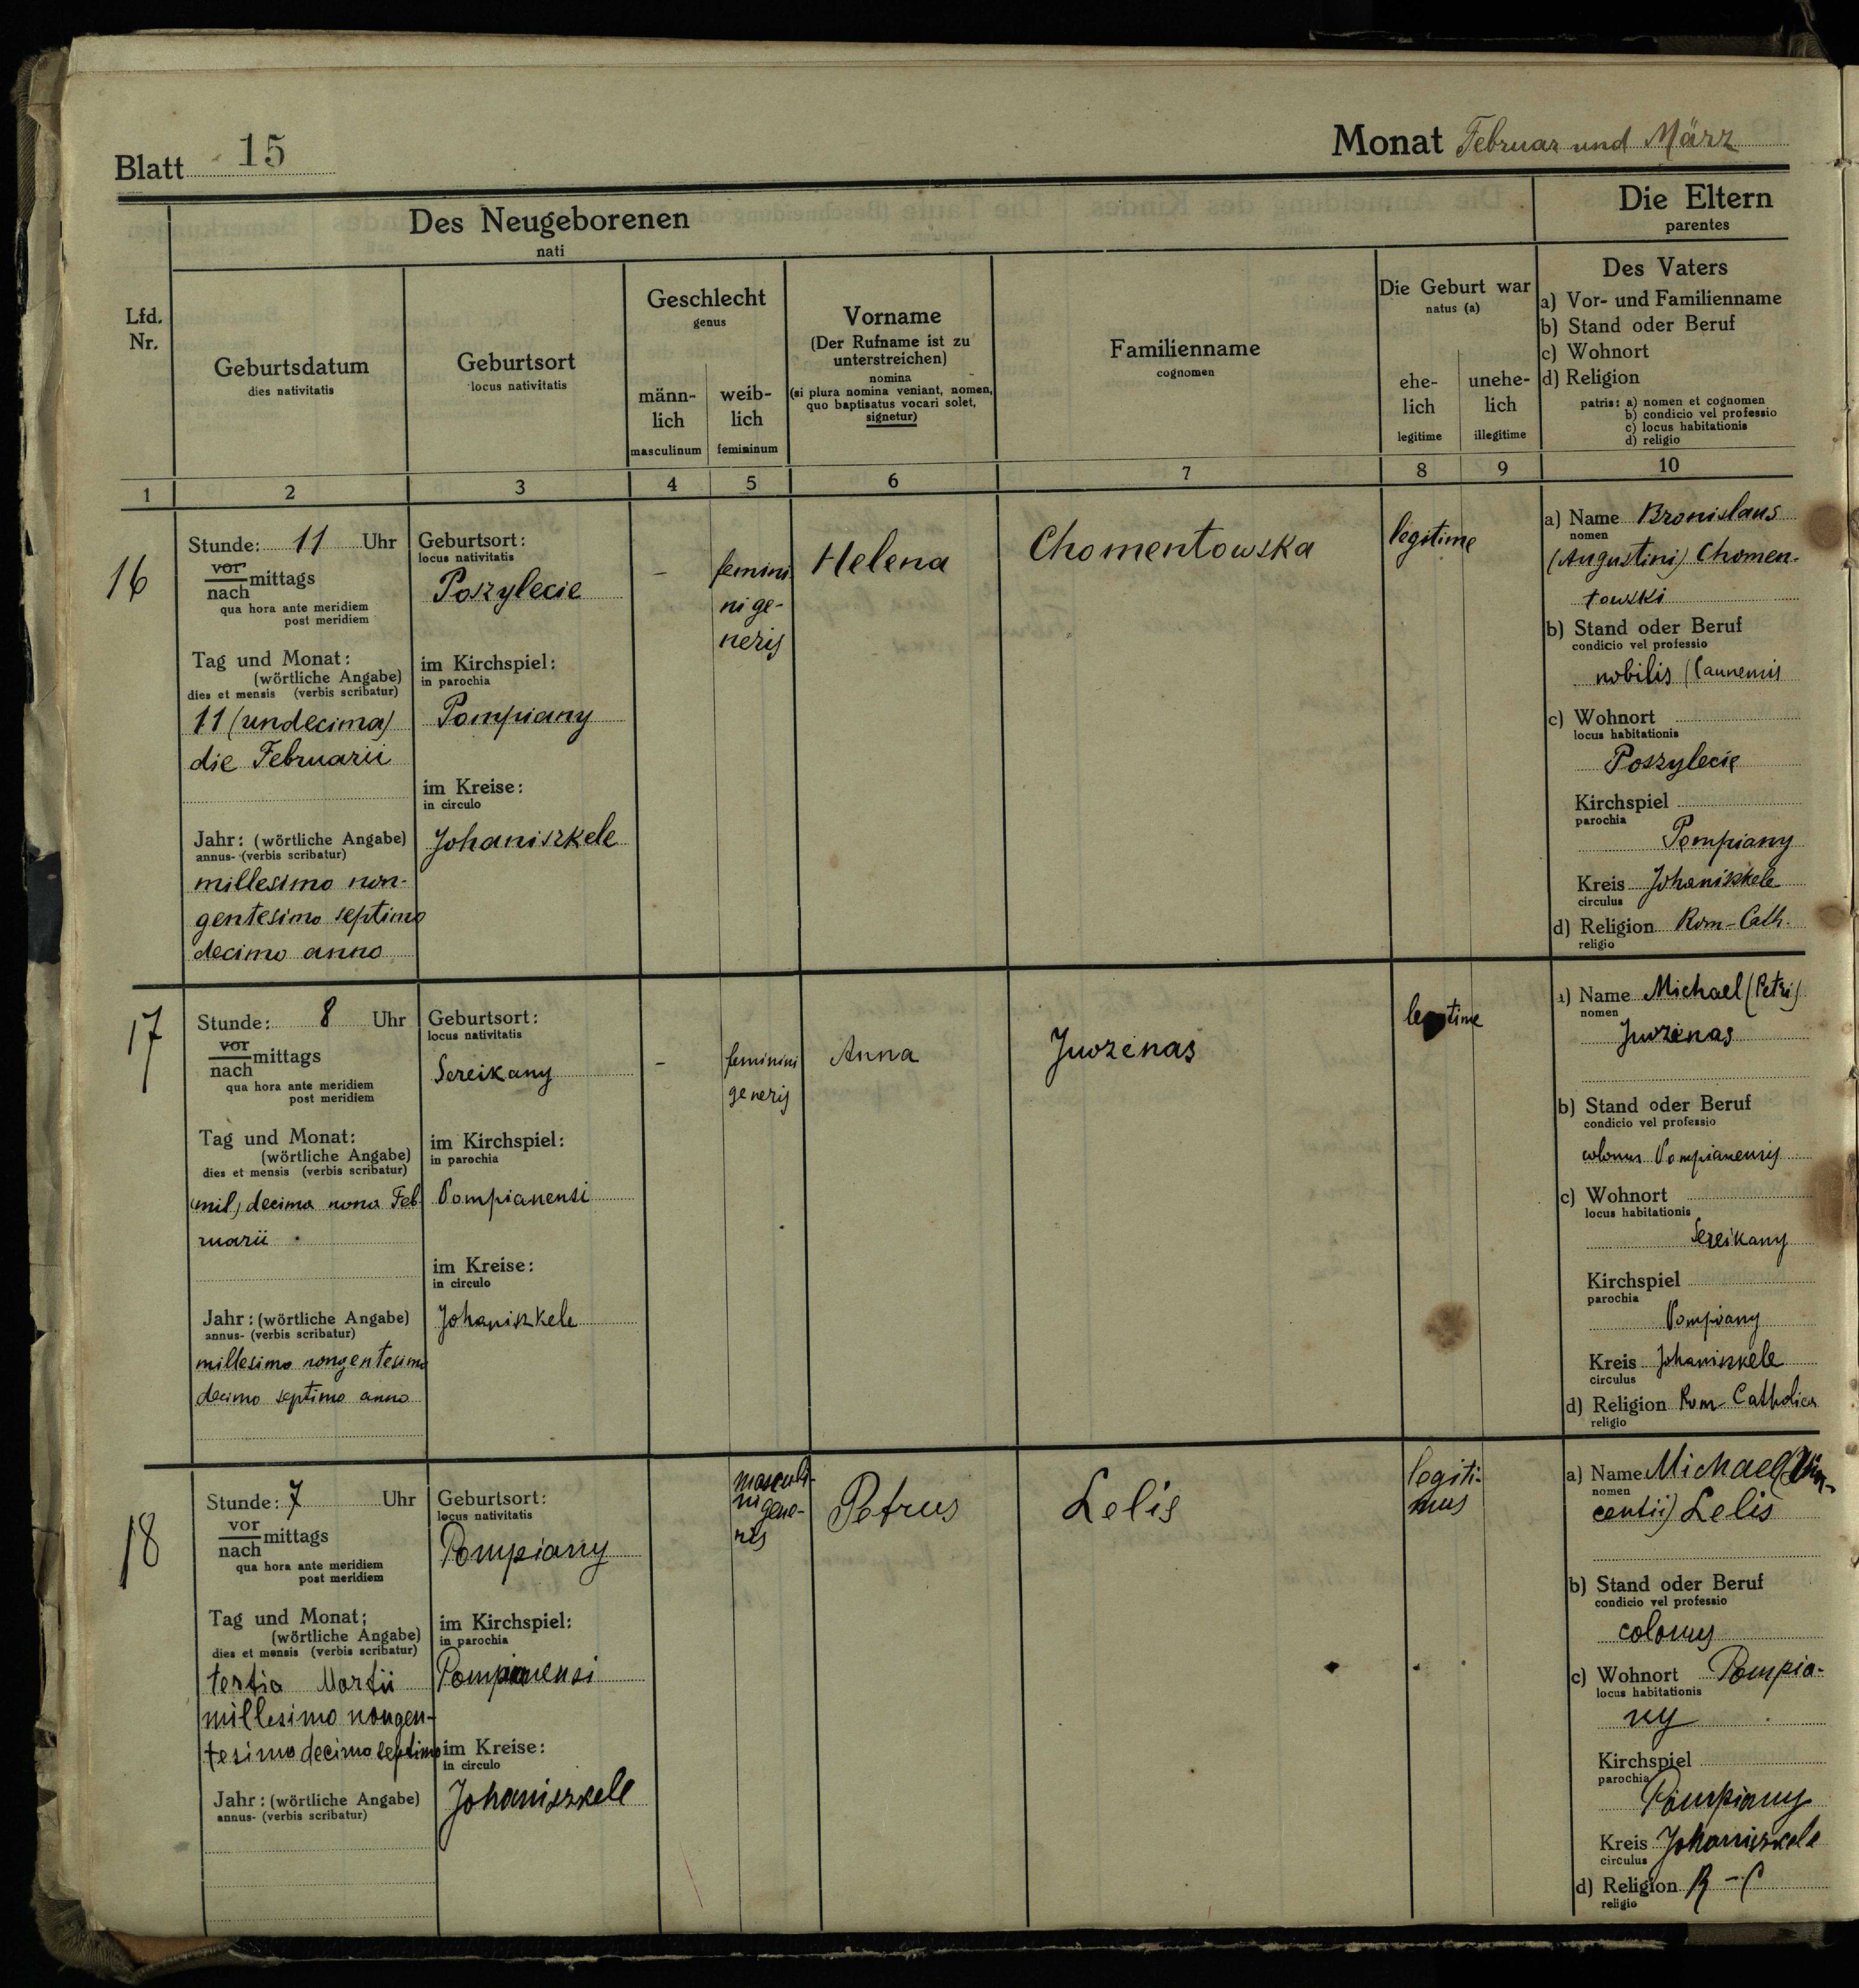 Blatt 15
Monat Februar und März
Des Neugeborenen
nati
Die Eltern
parentes
Lfd.
Nr.
Geburtsdatum
dies nativitatis
Geburtsort
locus nativitatis
Geschlecht
genus
männ-
lich
masculinum
weib-
lich
femininum
Vorname
(Der Rufname ist zu
unterstreichen)
nomina
(si plura nomina veniant, nomen,
quo baptisatus vocari solet,
signetur)
Familienname
cognomen
Die Geburt war
natus (a)
ehe-
lich
legitime
unehe-
lich
illegitime
Des Vaters
a) Vor- und Familienname
b) Stand oder Beruf
c) Wohnort
d) Religion
patris: a) nomen et cognomen
b) condicio vel professio
c) locus habitationis
d) religio
1 2 3 4 5 6 7 8 9 10
16
Stunde: 11 Uhr
vor
nach mittags
qua hora ante meridiem
post meridiem
Tag und Monat:
(wörtliche Angabe)
dies et mensis (verbis scribatur)
11 (undecima)
die Februarii
Jahr: (wörtliche Angabe)
annus- (verbis scribatur)
millesimo non-
gentesimo septimo
decimo anno
Geburtsort:
locus nativitatis
Poszylecie
im Kirchspiel:
in parochia
Pompiany
im Kreise:
in circulo
Johaniszkele
-
femini
ni ge-
neris
Helena
Chomentowska
legitime
a) Name Bronislaus
nomen
(Augustini) Chomen-
towski
b) Stand oder Beruf
condicio vel professio
nobilis
c) Wohnort
locus habitationis
Poszylecie
Kirchspiel
parochia
Pompiany
Kreis Johaniszkele
circulus
d) Religion Rom-Cath.
religio
17
Stunde: 8 Uhr
vor
nach mittags
qua hora ante meridiem
post meridiem
Tag und Monat:
(wörtliche Angabe)
dies et mensis (verbis scribatur)
decima nona Feb
ruarii
Jahr: (wörtliche Angabe)
annus- (verbis scribatur)
millesimo nongentesimo
decimo septimo anno
Geburtsort:
locus nativitatis
Sereikany
im Kirchspiel:
in parochia
Pompianensi
im Kreise:
in circulo
Johaniszkele
-
feminini
generis
Anna
Juozenas
legitime
a) Name Michael (Petri)
nomen
Juozenas
b) Stand oder Beruf
condicio vel professio
colonus Pompianensis
c) Wohnort
locus habitationis
Sereikany
Kirchspiel
parochia
Pompiany
Kreis Johaniszkele
circulus
d) Religion Rom-Catholica
religio
18
Stunde: 7 Uhr
vor
nach mittags
qua hora ante meridiem
post meridiem
Tag und Monat:
(wörtliche Angabe)
dies et mensis (verbis scribatur)
tertia Martii
millesimo nongen-
tesimo decimo septimo
Jahr: (wörtliche Angabe)
annus- (verbis scribatur)
Geburtsort:
locus nativitatis
Pompiany
im Kirchspiel:
in parochia
Pompianensi
im Kreise:
in circulo
Johaniszkele
masculi-
ni gene-
ris
Petrus
Lelis
legiti-
mus
a) Name Michael (Vin-
nomen
centii) Lelis
b) Stand oder Beruf
condicio vel professio
colonus
c) Wohnort Pompia-
locus habitationis
ny
Kirchspiel
parochia
Pompiany
Kreis Johaniszkele
circulus
d) Religion R-C
religio